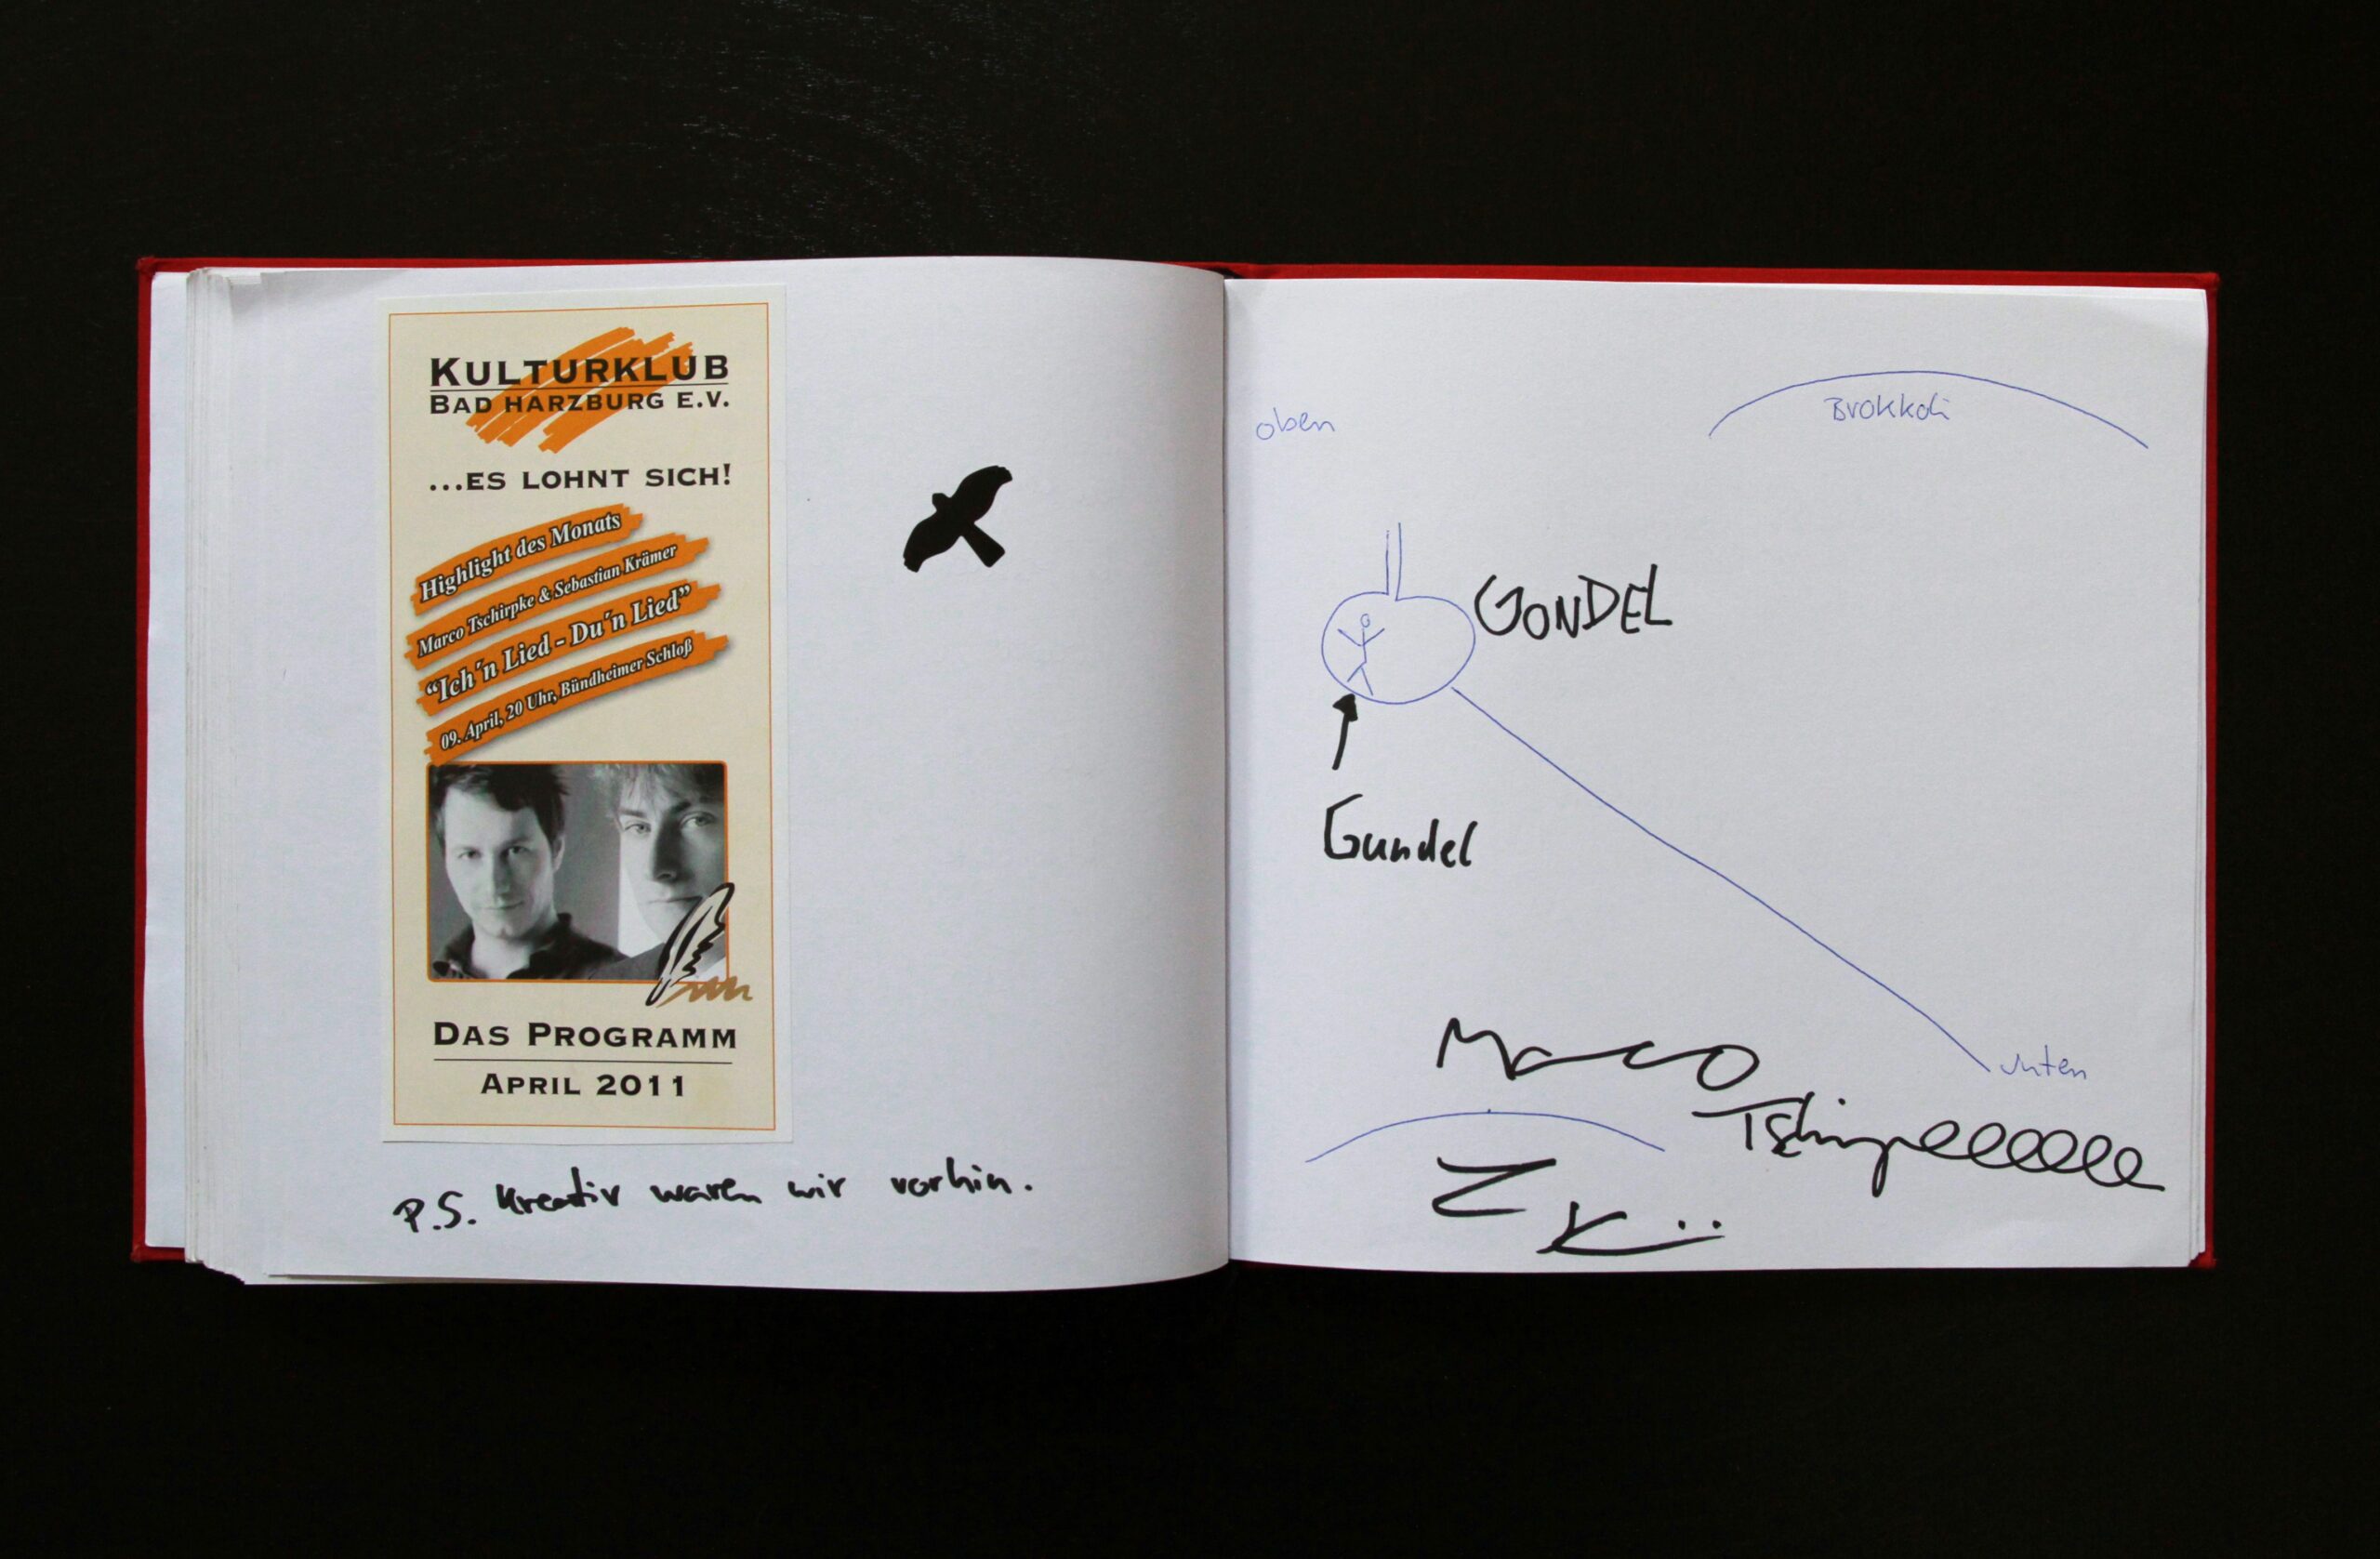 KULTURKLUB
BAD HARZBURG E.V.
...ES LOHNT SICH!
Highlight des Monats
Marco Tschirpke & Sebastian Krämer
“Ich´n Lied - Du´n Lied”
09. April, 20 Uhr, Bündheimer Schloß
DAS PROGRAMM
APRIL 2011
P.S. Kreativ waren wir vorhin.
oben
Brokkoli
GONDEL
Gundel
unten
Marco